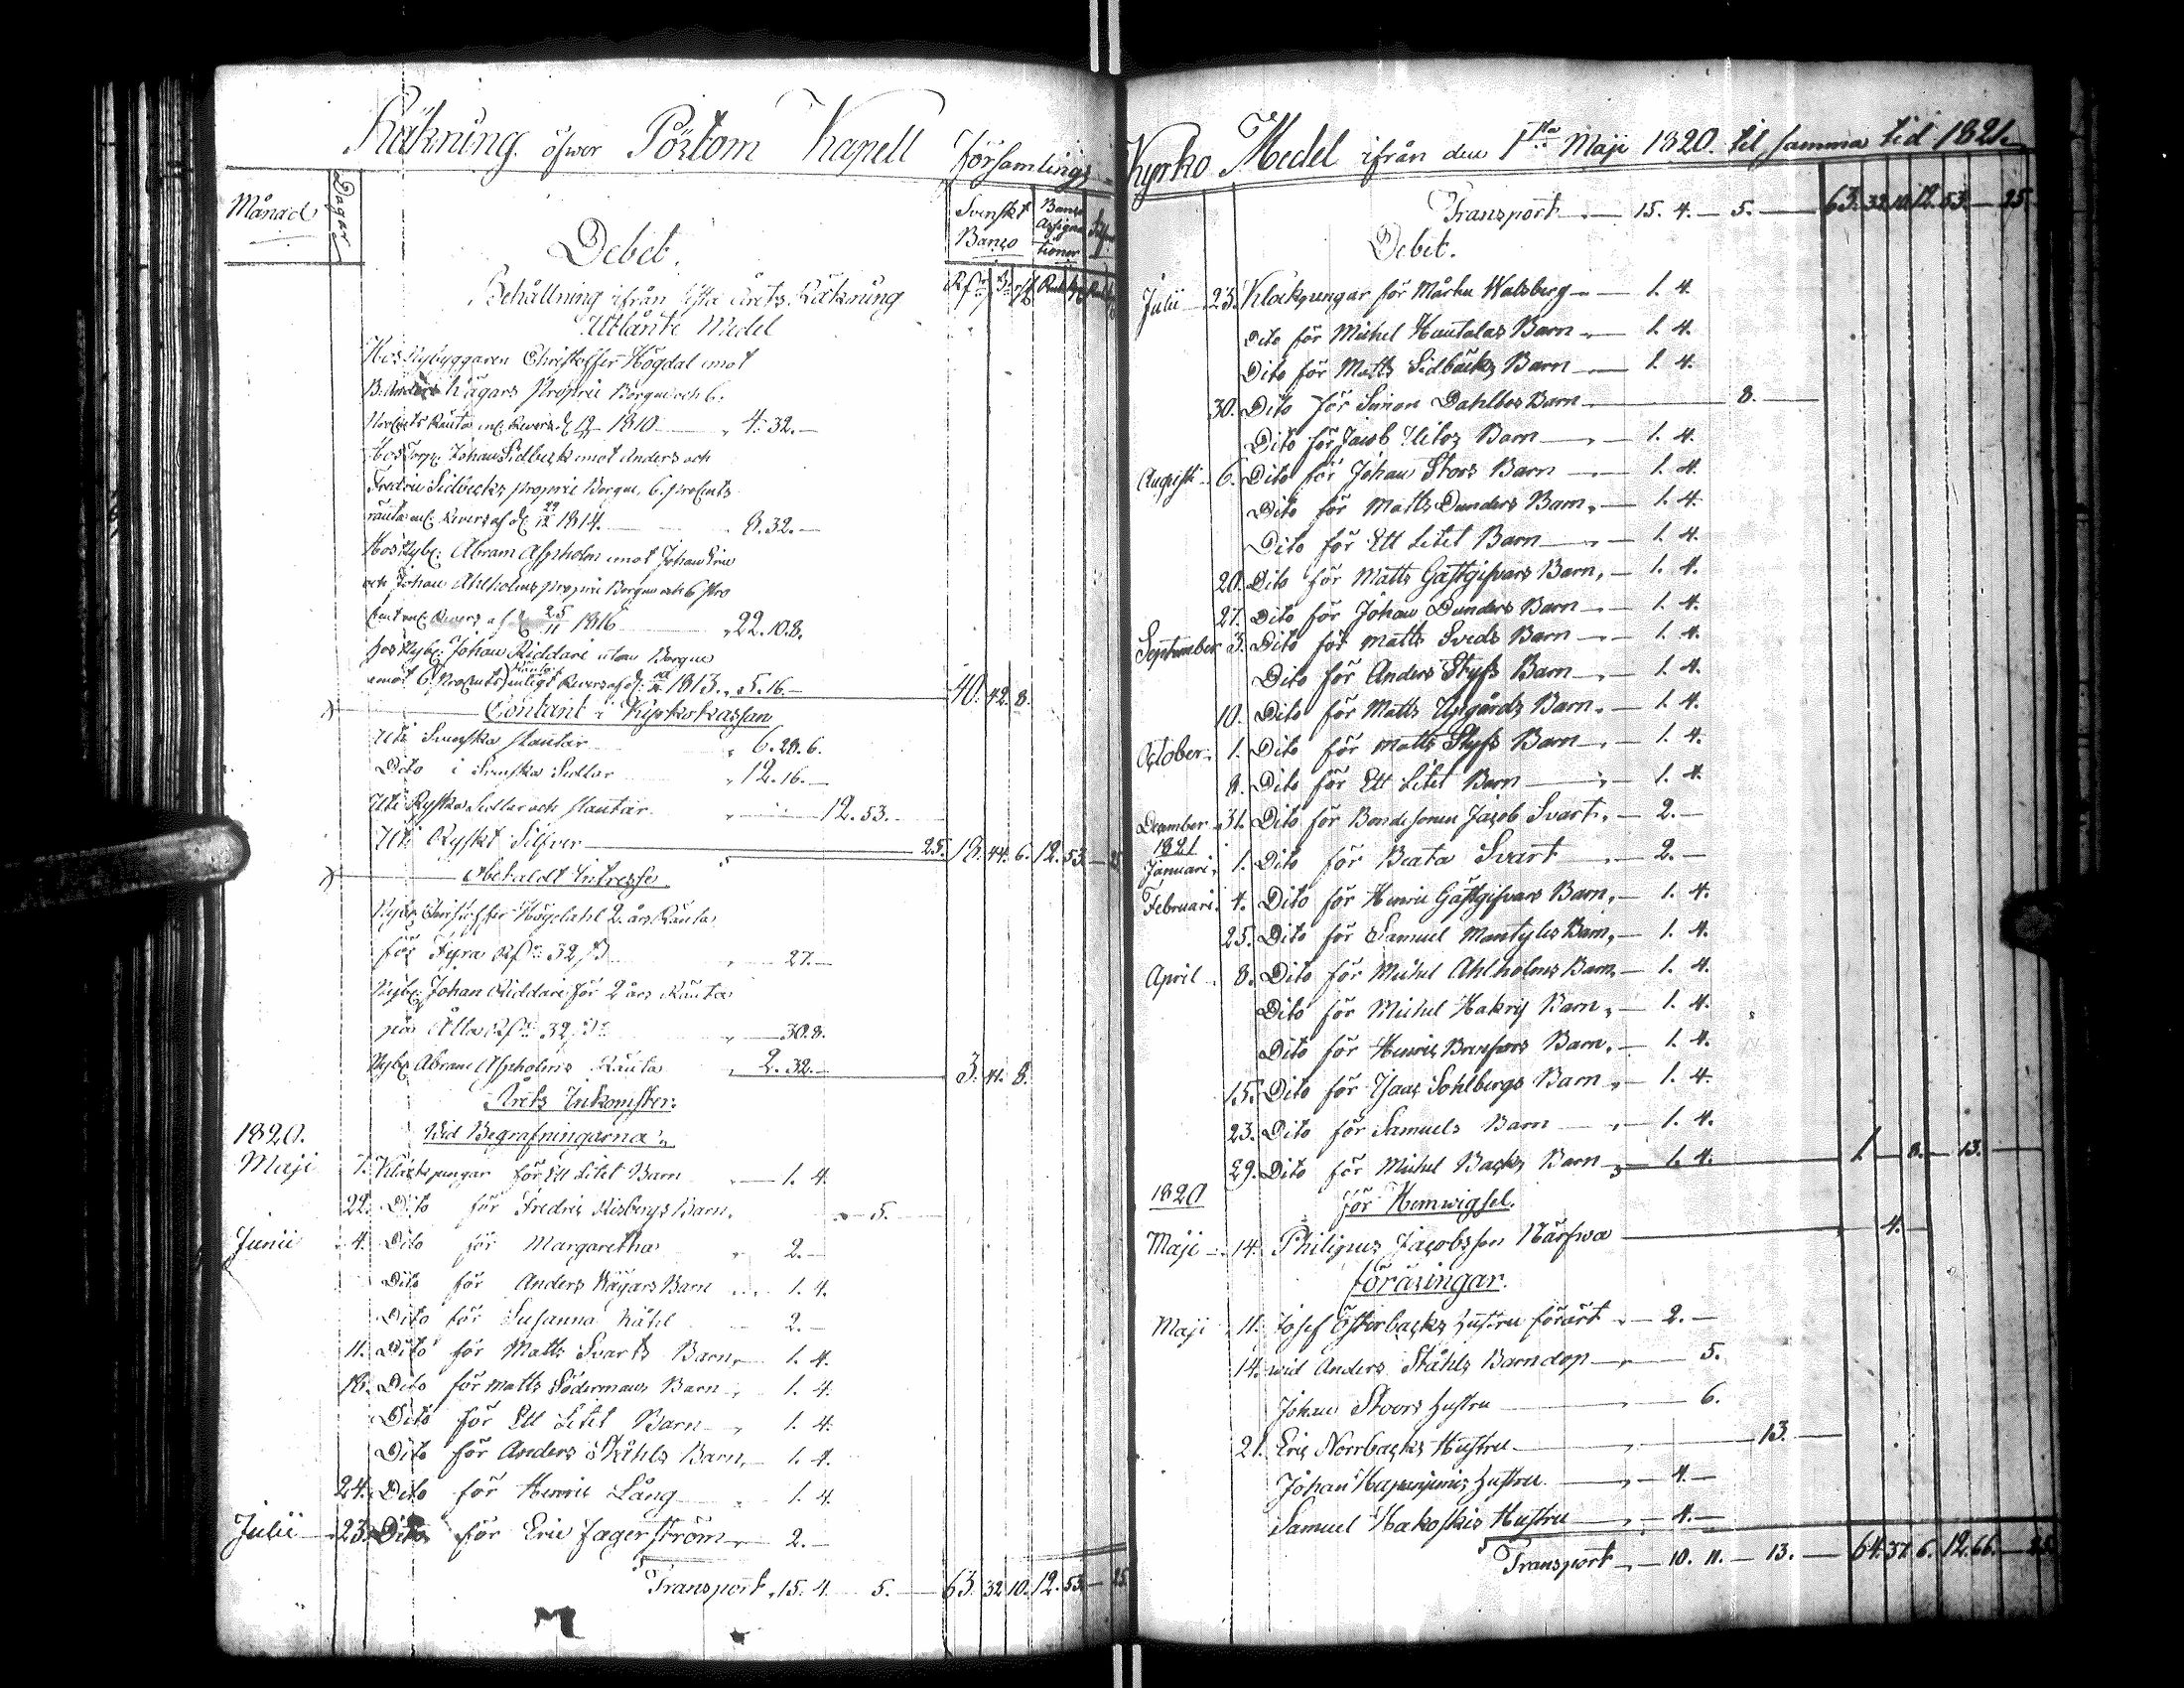 Räkning öfwer Pörtom Kapell Församlings
Månad Dagar
Svenskt Banco
Banco Assignationer
Debet.
Behållning ifrån sista Årets Räkning
Utlånte Medel
Hos Nybyggaren Christoffer Högdal emot
B. Anders Hägars Proprie Borgen och 6.
Procents Ränta 1810 4. 32.
Hos Torp. Johan Sidbeck emot Anders och
Fredric Sidbecks proprie Borgen, 6. procents
ränta enl. Revers af d. 29/12 1814. 8. 32.
Hos Nyb: Abram Aspholm emot Johan Eric
och Johan Ahlholms proprie Borgen och 6 pro
Cent enl. Revers af d 25/11 1816 22. 10. 8.
hos Nyb: Johan Riddare utan Borgen
emot 6. Procents Ränta enligt Revers af d. 1813. 5. 16. 40. 42. 8.
Contant i Kyrko Kassan
Uti Svenska slantar 6. 28. 6.
Dito i Svenska Sedlar 12. 16.
Uti Ryska Sedlar och slantar 12. 53.
Uti Ryskt Silfver 25. 18. 44. 6. 12. 53. 25
Obetaldt Intresse.
Nyb. Christoffer Högdahl 2. års Ränta
för Fyra Rd. 32 27.
Nyb: Johan Riddare för 2 års Ränta
på Åtta Rd. 32. 30. 8.
Nyb. Abram Aspholms Ränta 2. 32. 3. 41. 8.
Årets Inkomster.
1820. Wid Begrafningarna.
Maji 7. Klockpengar för Ett Litet Barn 1. 4.
22. Dito för Fredric Risbergs Barn. 5.
Junii 4. Dito för Margaretha 2.
Dito för Anders Hägars Barn 1. 4.
Dito för Susanna Ståhl 2.
11. Dito för Matts Svarts Barn 1. 4.
18. Dito för Matts Södermans Barn 1. 4.
Dito för Ett Litet Barn 1. 4.
Dito för Anders Ståhls Barn 1. 4.
24. Dito för Henric Lång 1. 4.
Julii 23. Dito för Eric Jagerström 2.
Transport 15. 4. 5. 63. 32 10. 12. 53. 25.
Kyrko Medel ifrån den 1sta Maji 1820. til samma tid 1821.
Transport 15. 4. 5. 63. 32. 10. 12. 53. 25.
Debet.
Julii 23. Klockpengar för Walsberg 1. 4.
Dito för Michel Hautalas Barn 1. 4.
Dito för Matts Sidbäcks Barn 1. 4.
30. Dito för Simon Dahlbos Barn 8.
Dito för Jacob Barn 1. 4.
Augusti 6. Dito för Johan Stors Barn 1. 4.
Dito för Matts Dunders Barn 1. 4.
Dito för Ett Litet Barn 1. 4.
20. Dito för Matts Gästgifvars Barn 1. 4.
27. Dito för Johan Dunders Barn 1. 4.
September 3. Dito för Matts Sveds Barn 1. 4.
Dito för Anders Styfs Barn 1. 4.
10. Dito för Matts Uppgårds Barn 1. 4.
October 1. Dito för Matts Styfs Barn 1. 4.
8. Dito för Ett Litet Barn 1. 4.
December 31. Dito för Bondesonen Jacob Svart 2.
1821
Januari 1. Dito för Beata Svart 2.
Februari 4. Dito för Henric Gästgifvars Barn 1. 4.
25. Dito för Samuel Mantyles Barn 1. 4.
April 8. Dito för Michel Ahlholms Barn 1. 4.
Dito för Michel Barn 1. 4.
Dito för Henric Barn 1. 4.
15. Dito för Isaac Sohlbergs Barn 1. 4.
23. Dito för Samuels Barn 1. 4.
29. Dito för Michel Backs Barn 1. 4. 1. 8. 13.
1820 för Hemwigsel.
Maji 14. Philipus Jacobsson Närfwa 4.
föräringar.
Maji 11. Josef Österbacks Hustru förärt 2.
14. wid Anders Ståhls Barndop 5.
Johan Stoors hustru 6.
21. Eric Norrbacks Hustru 13.
Johan hustru 4.
Samuel Hakoskis Hustru 4.
Transport 10. 11. 13. 64. 37. 6. 12. 66. 25.